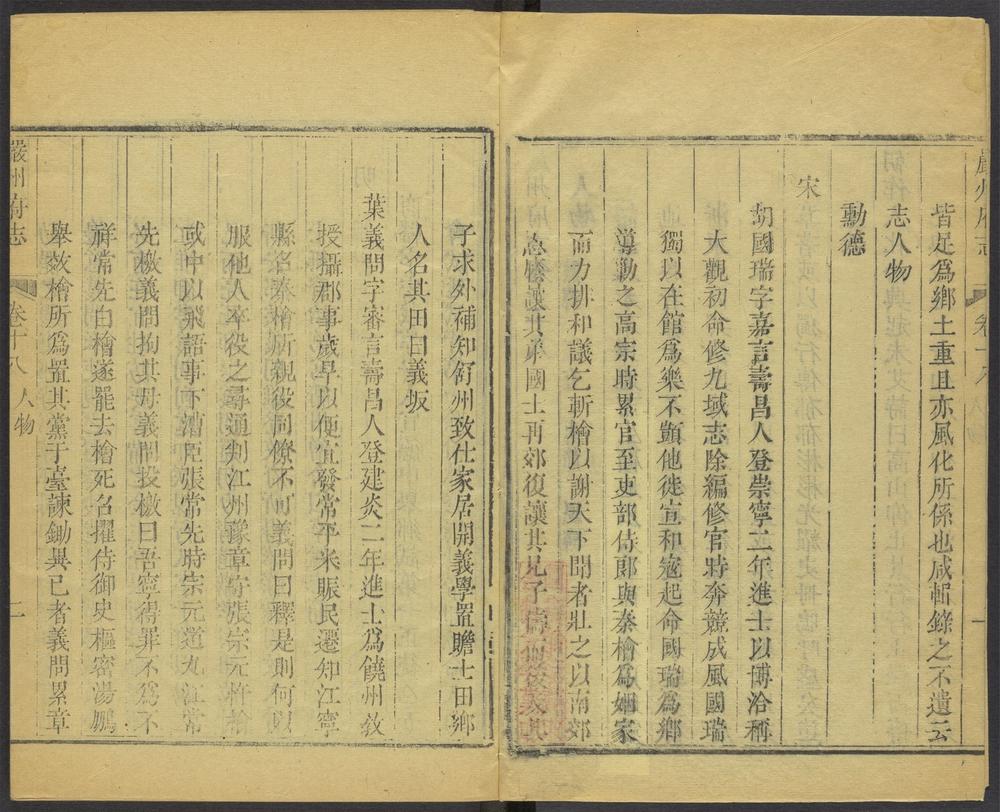 皆足爲鄉土重且亦風化所係也咸輯錄之不遺云
志人物
勳德
宋
胡國瑞字嘉言壽昌人登崇寧二年進士以博洽稱
大觀初命修九域志除編修官時奔競成風國瑞
獨以在館爲樂不顗他徙宣和寇起命國瑞爲鄉
導勦之高宗時累官至吏部侍郎與秦檜爲姻家
而力排和議乞斬檜以謝天下聞者壯之以南郊
恩廕讓其弟國士再郊復讓其兄子
子求外補知舒州致仕家居開義學置贍士田鄉
人名其田曰義坂
葉義問字審言壽昌人登建炎二年進士爲饒州教
授攝郡事歲旱以便宜發常平米賑民遷知江寧
縣名秦檜所親役同僚不可義問曰釋是則何以
服他人卒役之尋通判江州豫章守張宗元忤檜
或中以飛語事下漕臣張常先時宗元道九江常
先檄義問拘其母義問投檄曰吾寧得罪不爲不
祥常先白檜遂罷去檜死名擢侍御史樞密湯鵬
舉效檜所爲置其黨于臺諫鋤異己者義問累章
嚴州府志
卷十八
人物
二